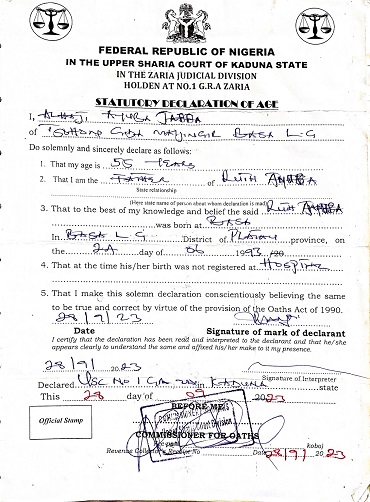 FEDERAL REPUBLIC OF NIGERIA
IN THE UPPER SHARIA COURT OF KADUNA STATE
IN THE ZARIA JUDICIAL DIVISION
HOLDEN AT NO.1 G.R.A ZARIA
STATUTORY DECLARATION OF AGE
I, ALHAJI AYUBA
of GIDA BASA L.G
Do solemnly and sincerely declare as follows:
1. That my age is 55 YEARS
2. That I am the FATHER of RUTH AYUBA
State relationship
(Here state name of person about whom declaration is mad
3. That to the best of my knowledge and belief the said RUTH AYUBA
was born at BASSA
In BASA L.G District of PLATEAU province, on
the day of 06 1993 /20
4. That at the time his/her birth was not registered at HOSPITAL
5. That I make this solemn declaration conscientiously believing the same
to be true and correct by virtue of the provision of the Oaths Act of 1990.
28/9/23
Date Signature of mark of declarant
I certify that the declaration has been read and interpreted to the declarant and that he/she
appears clearly to understand the same and affixed his/her make to my presence.
28/9/ 2023
Signature of Interpreter
Declared USC No 1 GRA in KADUNA state
This 28 day of 09 2023
BEFORE ME
Official Stamp
COMMISSIONER FOR OATHS
kobo)
Revenue Collector's Receipt No Date 28/9/ 2023